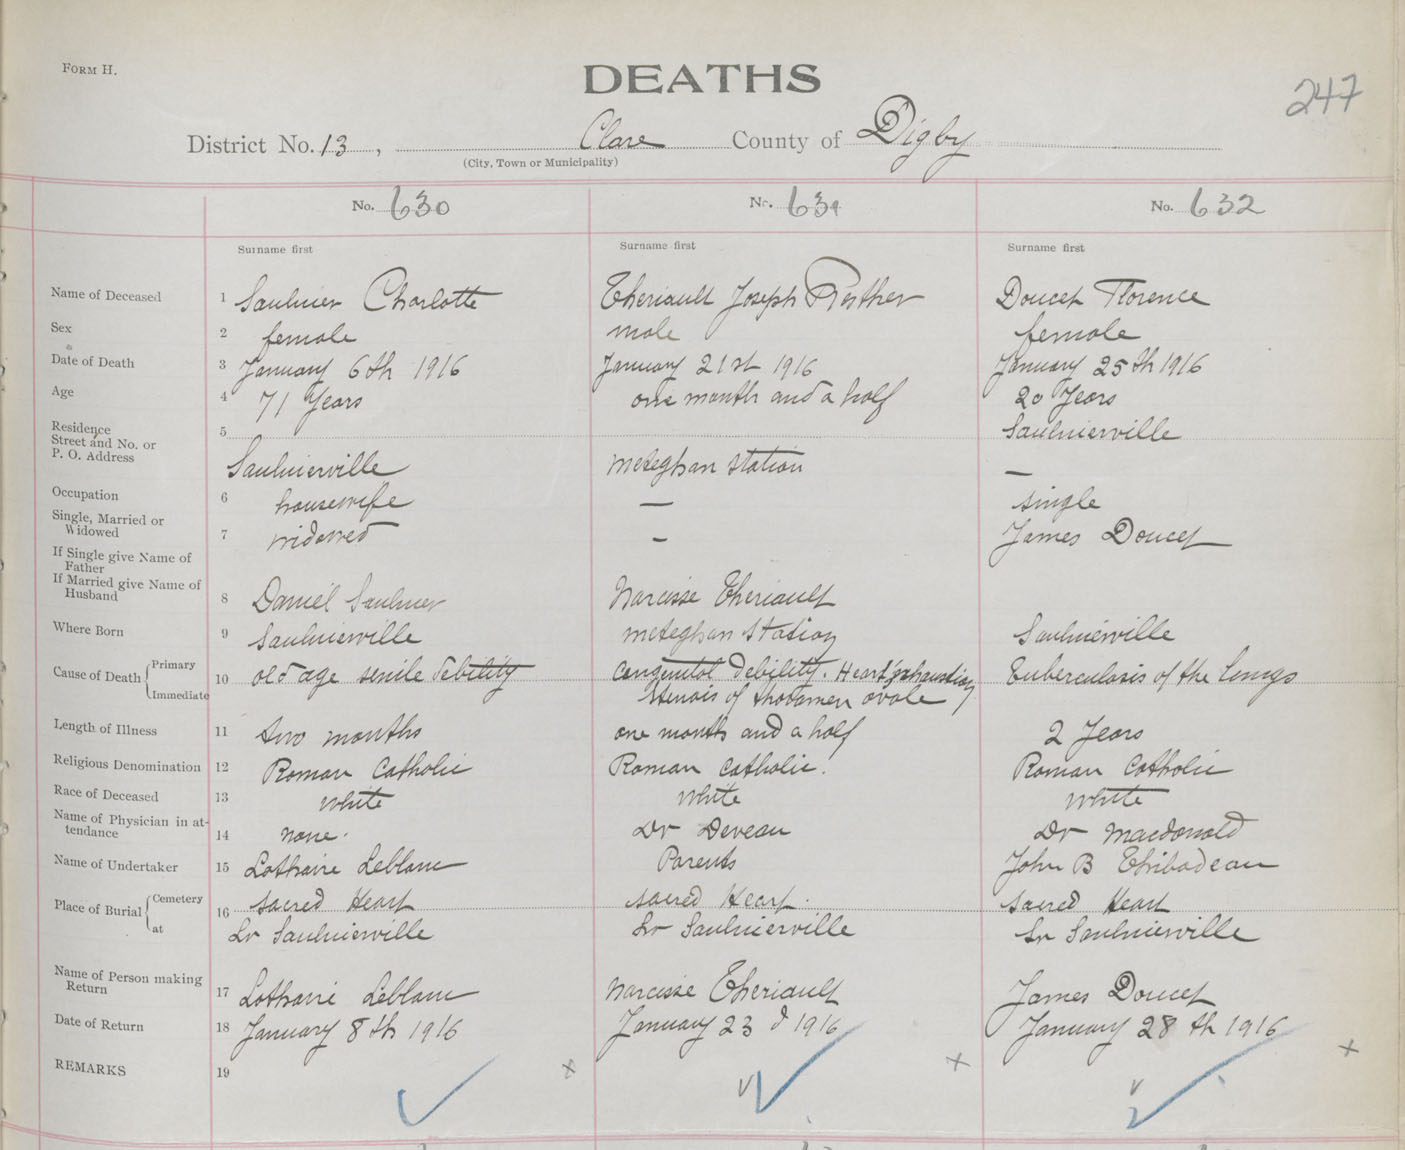 FORM H.
DEATHS
247
District No. 13, Clare County of Digby
(City, Town or Municipality)
No. 630 No. 631 No. 632
Surname first Surname first Surname first
Name of Deceased 1 Saulnier Charlotte Theriault Joseph Doucet Florence
Sex 2 female male female
Date of Death 3 January 6th 1916 January 21st 1916 January 25th 1916
Age 4 71 Years one month and a half 20 Years
Residence
Street and No. or
P. O. Address 5 Saulnierville Meteghan Station Saulnierville
Occupation 6 housewife — —
Single, Married or
Widowed 7 widowed — single
If Single give Name of
Father
If Married give Name of
Husband 8 Daniel Saulnier Narcisse Theriault James Doucet
Where Born 9 Saulnierville Meteghan Station Saulnierville
Cause of Death { Primary
Immediate 10 old age senile debility Congenital debility. Heart exhaustion Tuberculosis of the lungs
of ovale
Length of Illness 11 two months one month and a half 2 Years
Religious Denomination 12 Roman Catholic Roman Catholic. Roman Catholic
Race of Deceased 13 White White White
Name of Physician in at-
tendance 14 none. Dr Deveau Dr Macdonald
Name of Undertaker 15 Lothaire Leblanc Parents John B Thibodeau
Place of Burial { Cemetery
at 16 Sacred Heart Sacred Heart. Sacred Heart
Saulnierville Saulnierville Saulnierville
Name of Person making
Return 17 Lothaire Leblanc Narcisse Theriault James Doucet
Date of Return 18 January 8th 1916 January 23 d 1916 January 28 th 1916
REMARKS 19